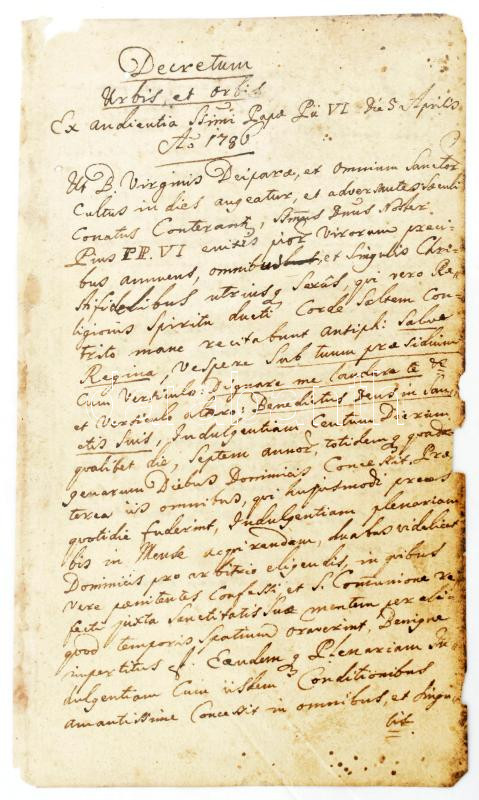 Decretum
Urbis, et Orbis
Ex audientia Ssimi Papæ Pii VI die 5 Aprilis
Ao 1786
Ut B. Virginis Deiparæ, et omnium Sanctor
Cultus in dies augeatur, et adversantes Sæculi
Conatus Conterant, Ssmus Dnus Noster
Pius PP. VI enixis pior Virorum preci-
bus annuens, omnibus, et Singulis Chri-
stifidelibus utriusq Sexus, qui vero Re-
ligionis Spiritu ducti Corde Saltem Con-
trito mane recitabunt antiph: Salve
Regina, Vespere Sub tuum præsidium
Cum Versiculo Dignare me laudare te &c
et Versiculo altero: Benedictus Deus in San-
ctis Suis, Indulgentiam Centum Dierum
qualibet die, Septem annor, totidemq quadra-
genarum Diebus Dominicis Concessit, Præ-
terea iis omnibus, qui hujusmodi preces
quotidie fuderint, Indulgentiam plenariam
bis in Mense acquirendam, duabus videlicet
Dominicis pro arbitrio eligendis, in quibus
Vere pænitentes Confessi, et S. Comunione re-
fecti juxta Sanctitatis Suæ mentem per ali-
quod temporis Spatium oraverint, Benigne
impertitus est. Eandemq Plenariam In-
dulgentiam Cum iisdem Conditionibus
amantissime Concessit in omnibus, et Singu-
lis